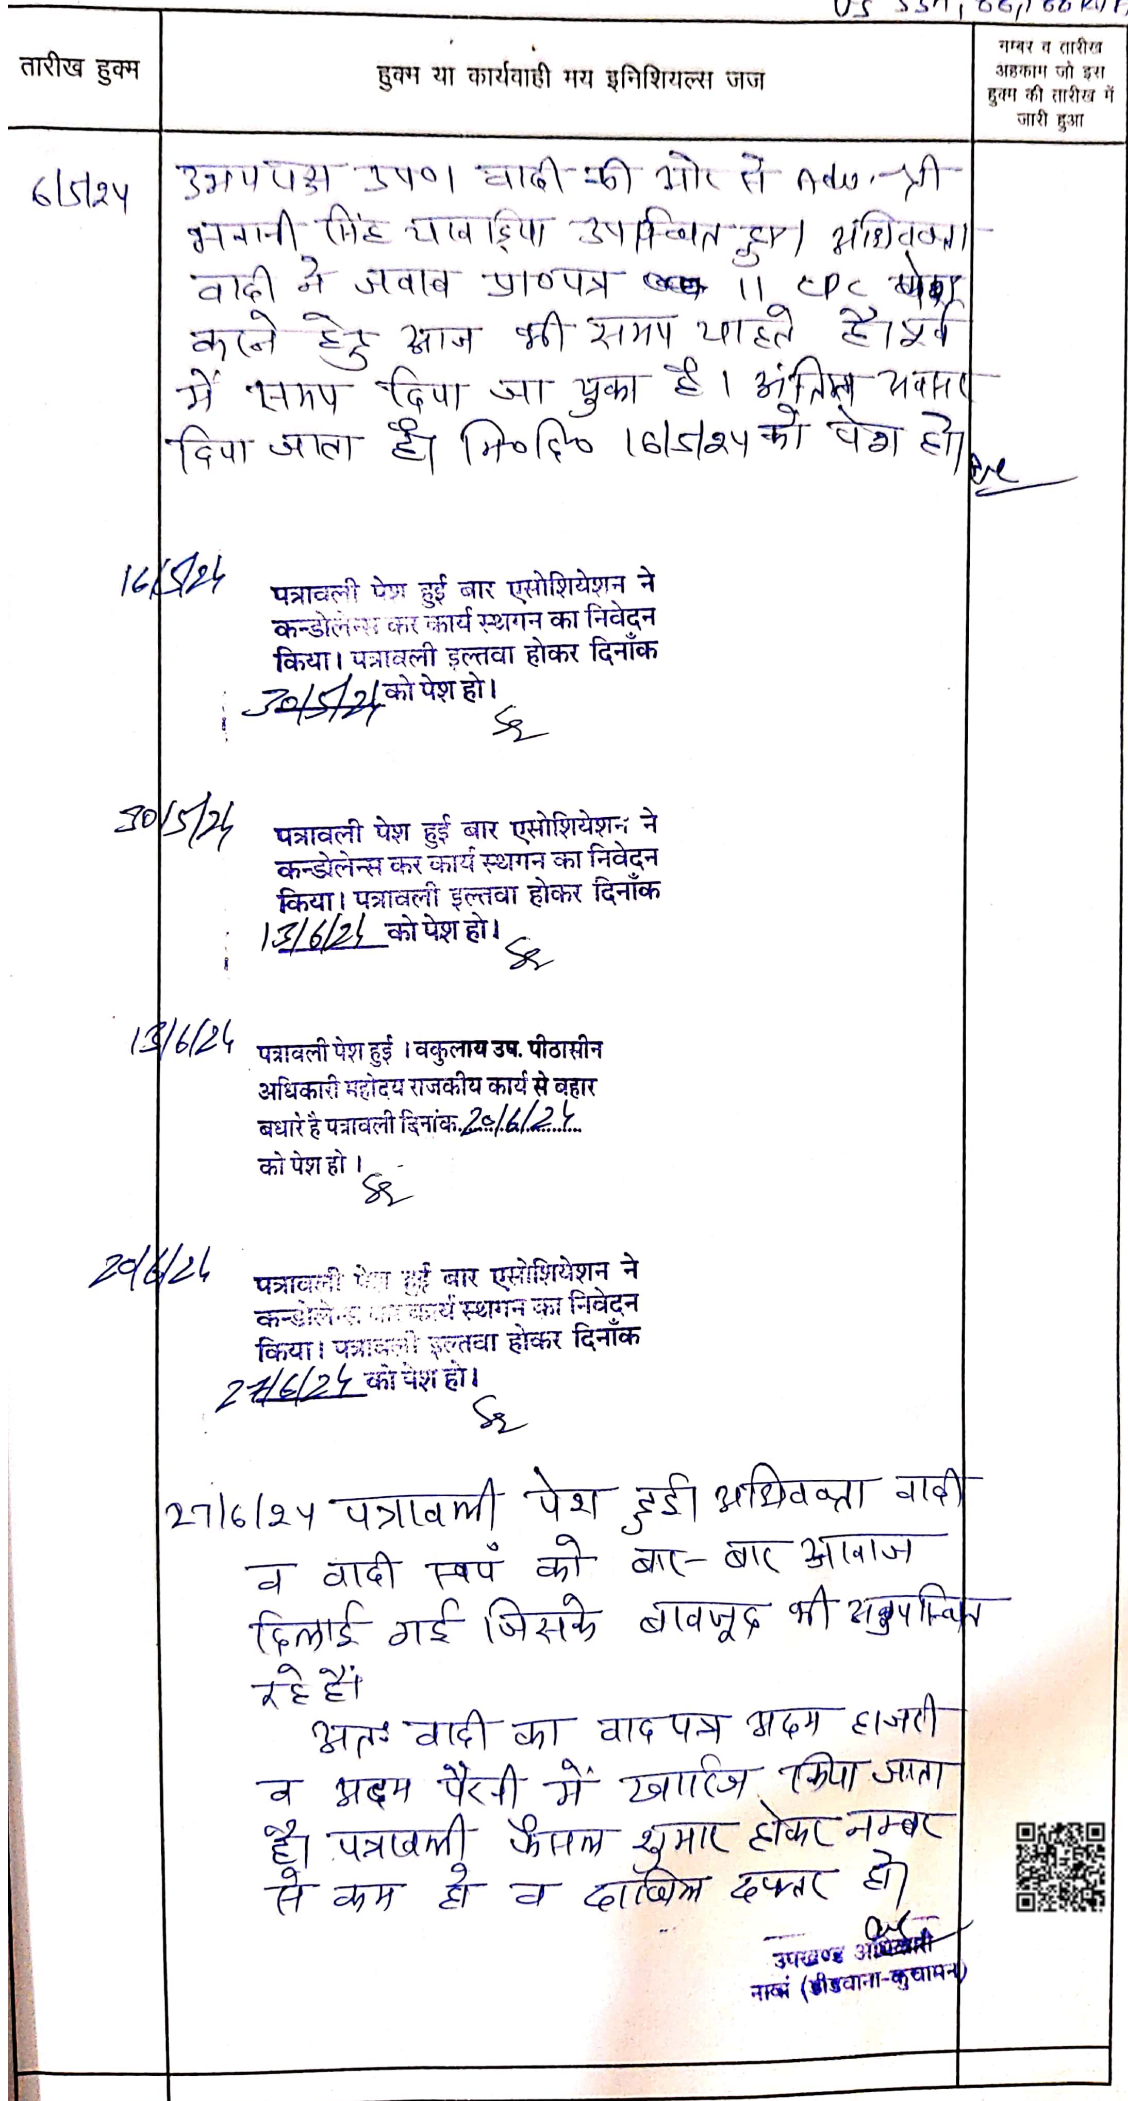 तारीख हुक्म
हुक्म या कार्यवाही मय इनिशियल्स जज
नम्बर व तारीख
अहकाम जो इस
हुक्म की तारीख में
जारी हुआ
6/5/24
उभयपक्ष उप० वादी की ओर से Adv. श्री
भवानी सिंह उपस्थित हुए। अधिवक्ता
वादी ने जवाब प्रा०पत्र 11 CPC पेश
करने हेतु आज भी समय चाहते है। पूर्व
में समय दिया जा चुका है। अंतिम अवसर
दिया जाता है। मि०दि० 16/5/24 को पेश हो।
16/5/24
पत्रावली पेश हुई बार एसोशियेशन ने
कन्डोलेन्स कर कार्य स्थगन का निवेदन
किया। पत्रावली इल्तवा होकर दिनाँक
30/5/24 को पेश हो।
30/5/24
पत्रावली पेश हुई बार एसोशियेशन ने
कन्डोलेन्स कर कार्य स्थगन का निवेदन
किया। पत्रावली इल्तवा होकर दिनाँक
13/6/24 को पेश हो।
13/6/24
पत्रावली पेश हुई । वकुलाय उप. पीठासीन
अधिकारी महोदय राजकीय कार्य से बहार
बधारे है पत्रावली दिनांक 20/6/24
को पेश हो ।
20/6/24
पत्रावली पेश हुई बार एसोशियेशन ने
कन्डोलेन्स कर कार्य स्थगन का निवेदन
किया। पत्रावली इल्तवा होकर दिनाँक
27/6/24 को पेश हो।
27/6/24 पत्रावली पेश हुई। अधिवक्ता वादी
व वादी स्वयं को बार-बार आवाज
दिलाई गई जिसके बावजूद भी अनुपस्थित
रहे हैं।
अतः वादी का वाद पत्र अदम हाजरी
व अदम पैरवी में खारिज किया जाता
है। पत्रावली फैसल शुमार होकर नम्बर
से कम हो व दाखिल दफ्तर हो।
उपखण्ड अधिकारी
नावां (डीडवाना-कुचामन)